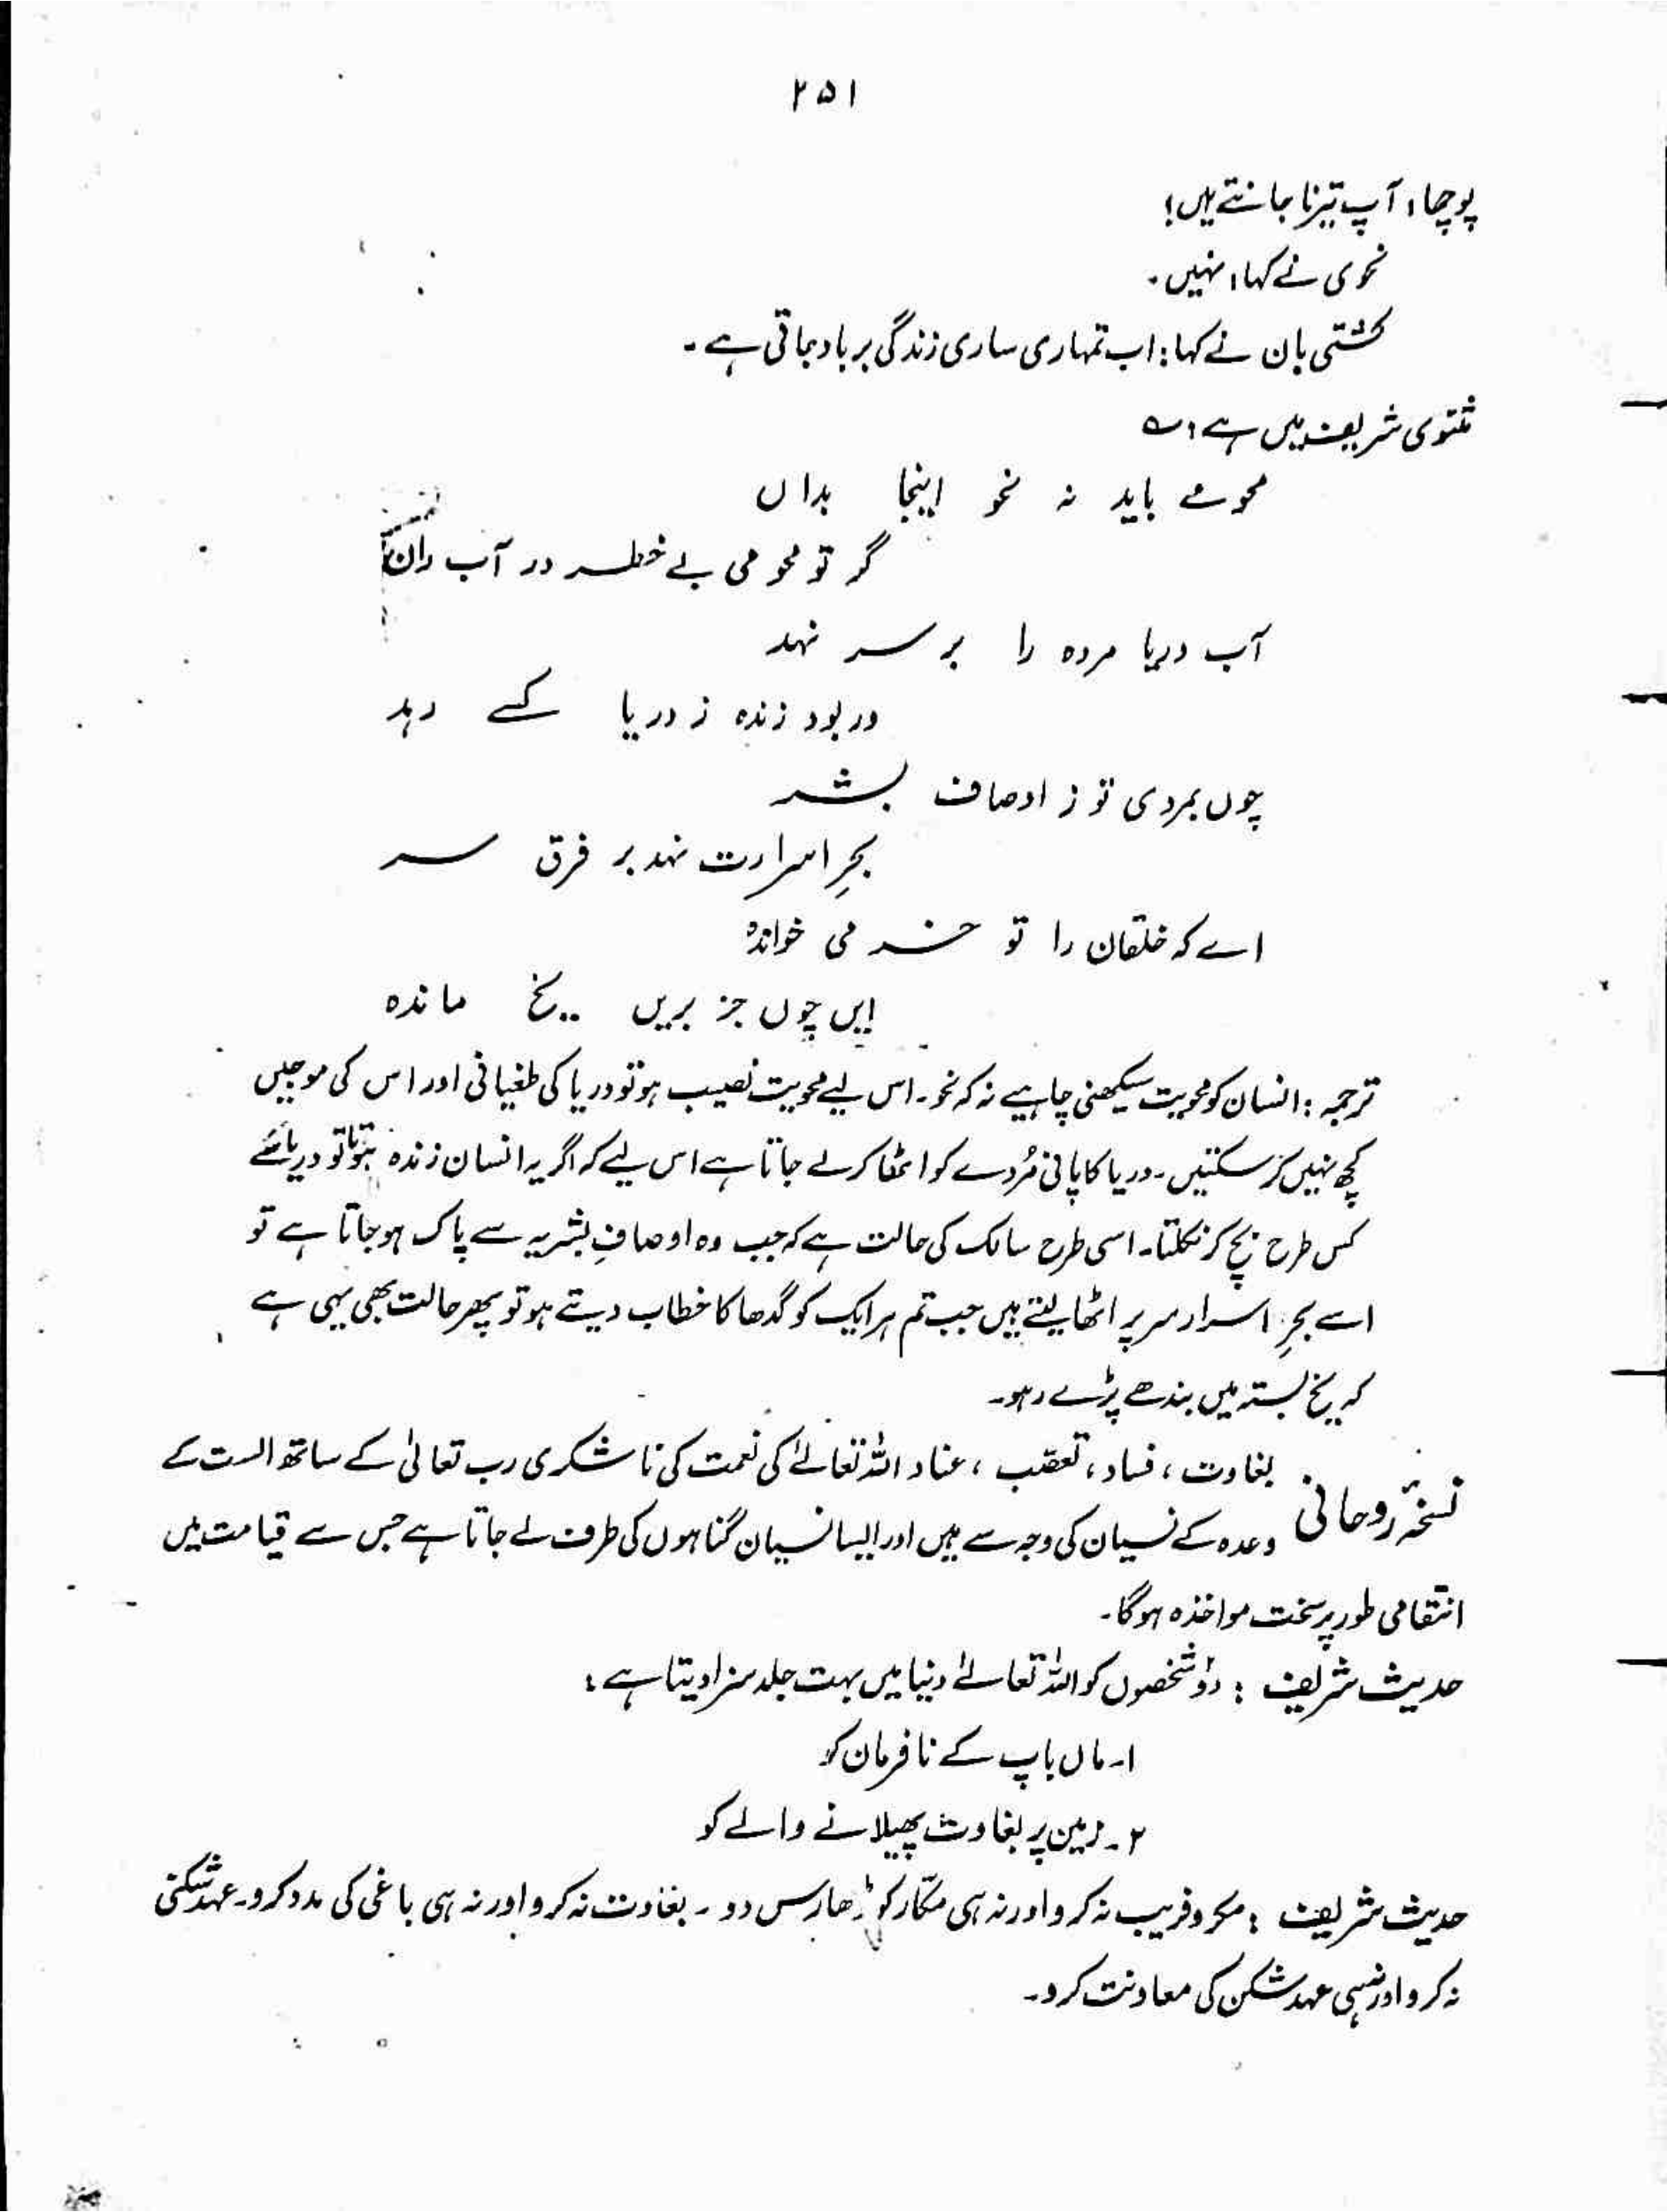 ۲۵۱
پوچھا، آپ تیرنا جانتے ہیں؛
نحوی نے کہا، نہیں۔
کشتی بان نے کہا: اب تمہاری ساری زندگی برباد جاتی ہے۔
مثنوی شریف میں ہے؛ ؎
محومے باید نہ نحو اینجا بداں
گر تو محومی بے خطر در آب ران
آب دریا مردہ را بر سر نہد
ور بود زندہ ز دریا کے رہد
چوں بمردی تو ز اوصاف بشر
بحرِ اسرارت نہد بر فرق سر
اے کہ خلقان را تو خر می خواندہ
ایں چوں جز بریں یخ ماندہ
ترجمہ: انسان کو محویت سیکھنی چاہیے نہ کہ نحو۔ اس لیے محویت نصیب ہو تو دریا کی طغیانی اور اس کی موجیں
کچھ نہیں کر سکتیں۔ دریا کا پانی مُردے کو اٹھا کر لے جاتا ہے اس لیے کہ اگر یہ انسان زندہ ہوتا تو دریا سے
کس طرح بچ کر نکلتا۔ اسی طرح سالک کی حالت ہے کہ جب وہ اوصافِ بشریہ سے پاک ہو جاتا ہے تو
اسے بحرِ اسرار سر پر اٹھا لیتے ہیں جب تم ہر ایک کو گدھا کا خطاب دیتے ہو تو پھر حالت بھی یہی ہے
کہ یخ بستہ میں بندھے پڑے رہو۔
نسخۂ روحانی بغاوت، فساد، تعصب، عناد اللہ تعالےٰ کی نعمت کی ناشکری رب تعالیٰ کے ساتھ الست کے
وعدہ کے نسیان کی وجہ سے ہیں اور ایسا نسیان گناہوں کی طرف لے جاتا ہے جس سے قیامت میں
انتقامی طور پر سخت مواخذہ ہوگا۔
حدیث شریف: دو شخصوں کو اللہ تعالےٰ دنیا میں بہت جلد سزا دیتا ہے:
۱۔ ماں باپ کے نافرمان کو
۲۔ زمین پر بغاوت پھیلانے والے کو
حدیث شریف: مکر و فریب نہ کرو اور نہ ہی مکّار کو ڈھارس دو۔ بغاوت نہ کرو اور نہ ہی باغی کی مدد کرو۔ عہد شکنی
نہ کرو اور نہ ہی عہد شکن کی معاونت کرو۔